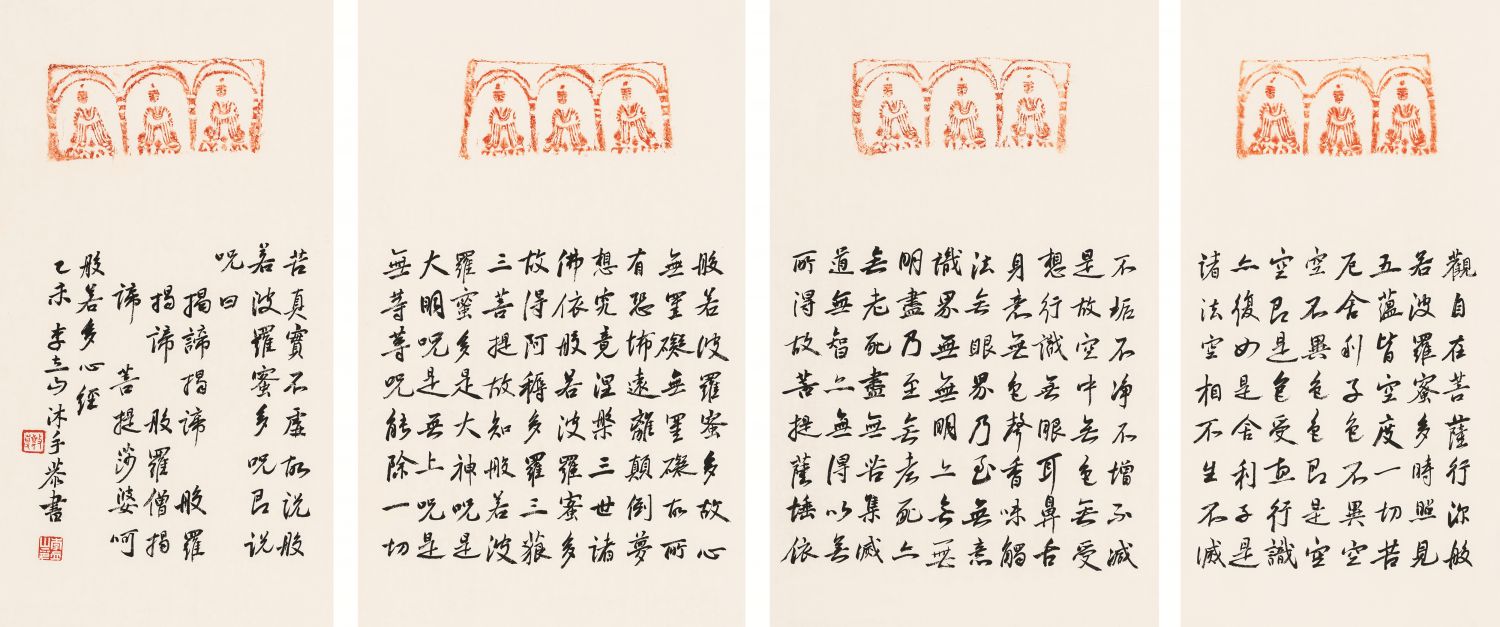 觀自在菩薩行深般
若波羅蜜多時照見
五蘊皆空度一切苦
厄舍利子色不異空
空不異色色即是空
空即是色受想行識
亦復如是舍利子是
諸法空相不生不滅
不垢不净不增不減
是故空中無色無受
想行識無眼耳鼻舌
身意無色聲香味觸
法無眼界乃至無意
識界無無明亦無無
明盡乃至無老死亦
無老死盡無苦集滅
道無智亦無得以無
所得故菩提薩埵依
般若波羅蜜多故心
無罣礙無罣礙故所
有恐怖遠離顛倒夢
想究竟涅槃三世諸
佛依般若波羅蜜多
故得阿耨多羅三藐
三菩提故知般若波
羅蜜多是大神呪是
大明呪是無上呪是
無等等呪能除一切
苦真實不虛故説般
若波羅蜜多呪即説
呪曰
揭諦揭諦 般羅
揭諦 般羅僧揭
諦 菩提莎婆呵
般若多心經
乙未 李立山沐手恭書